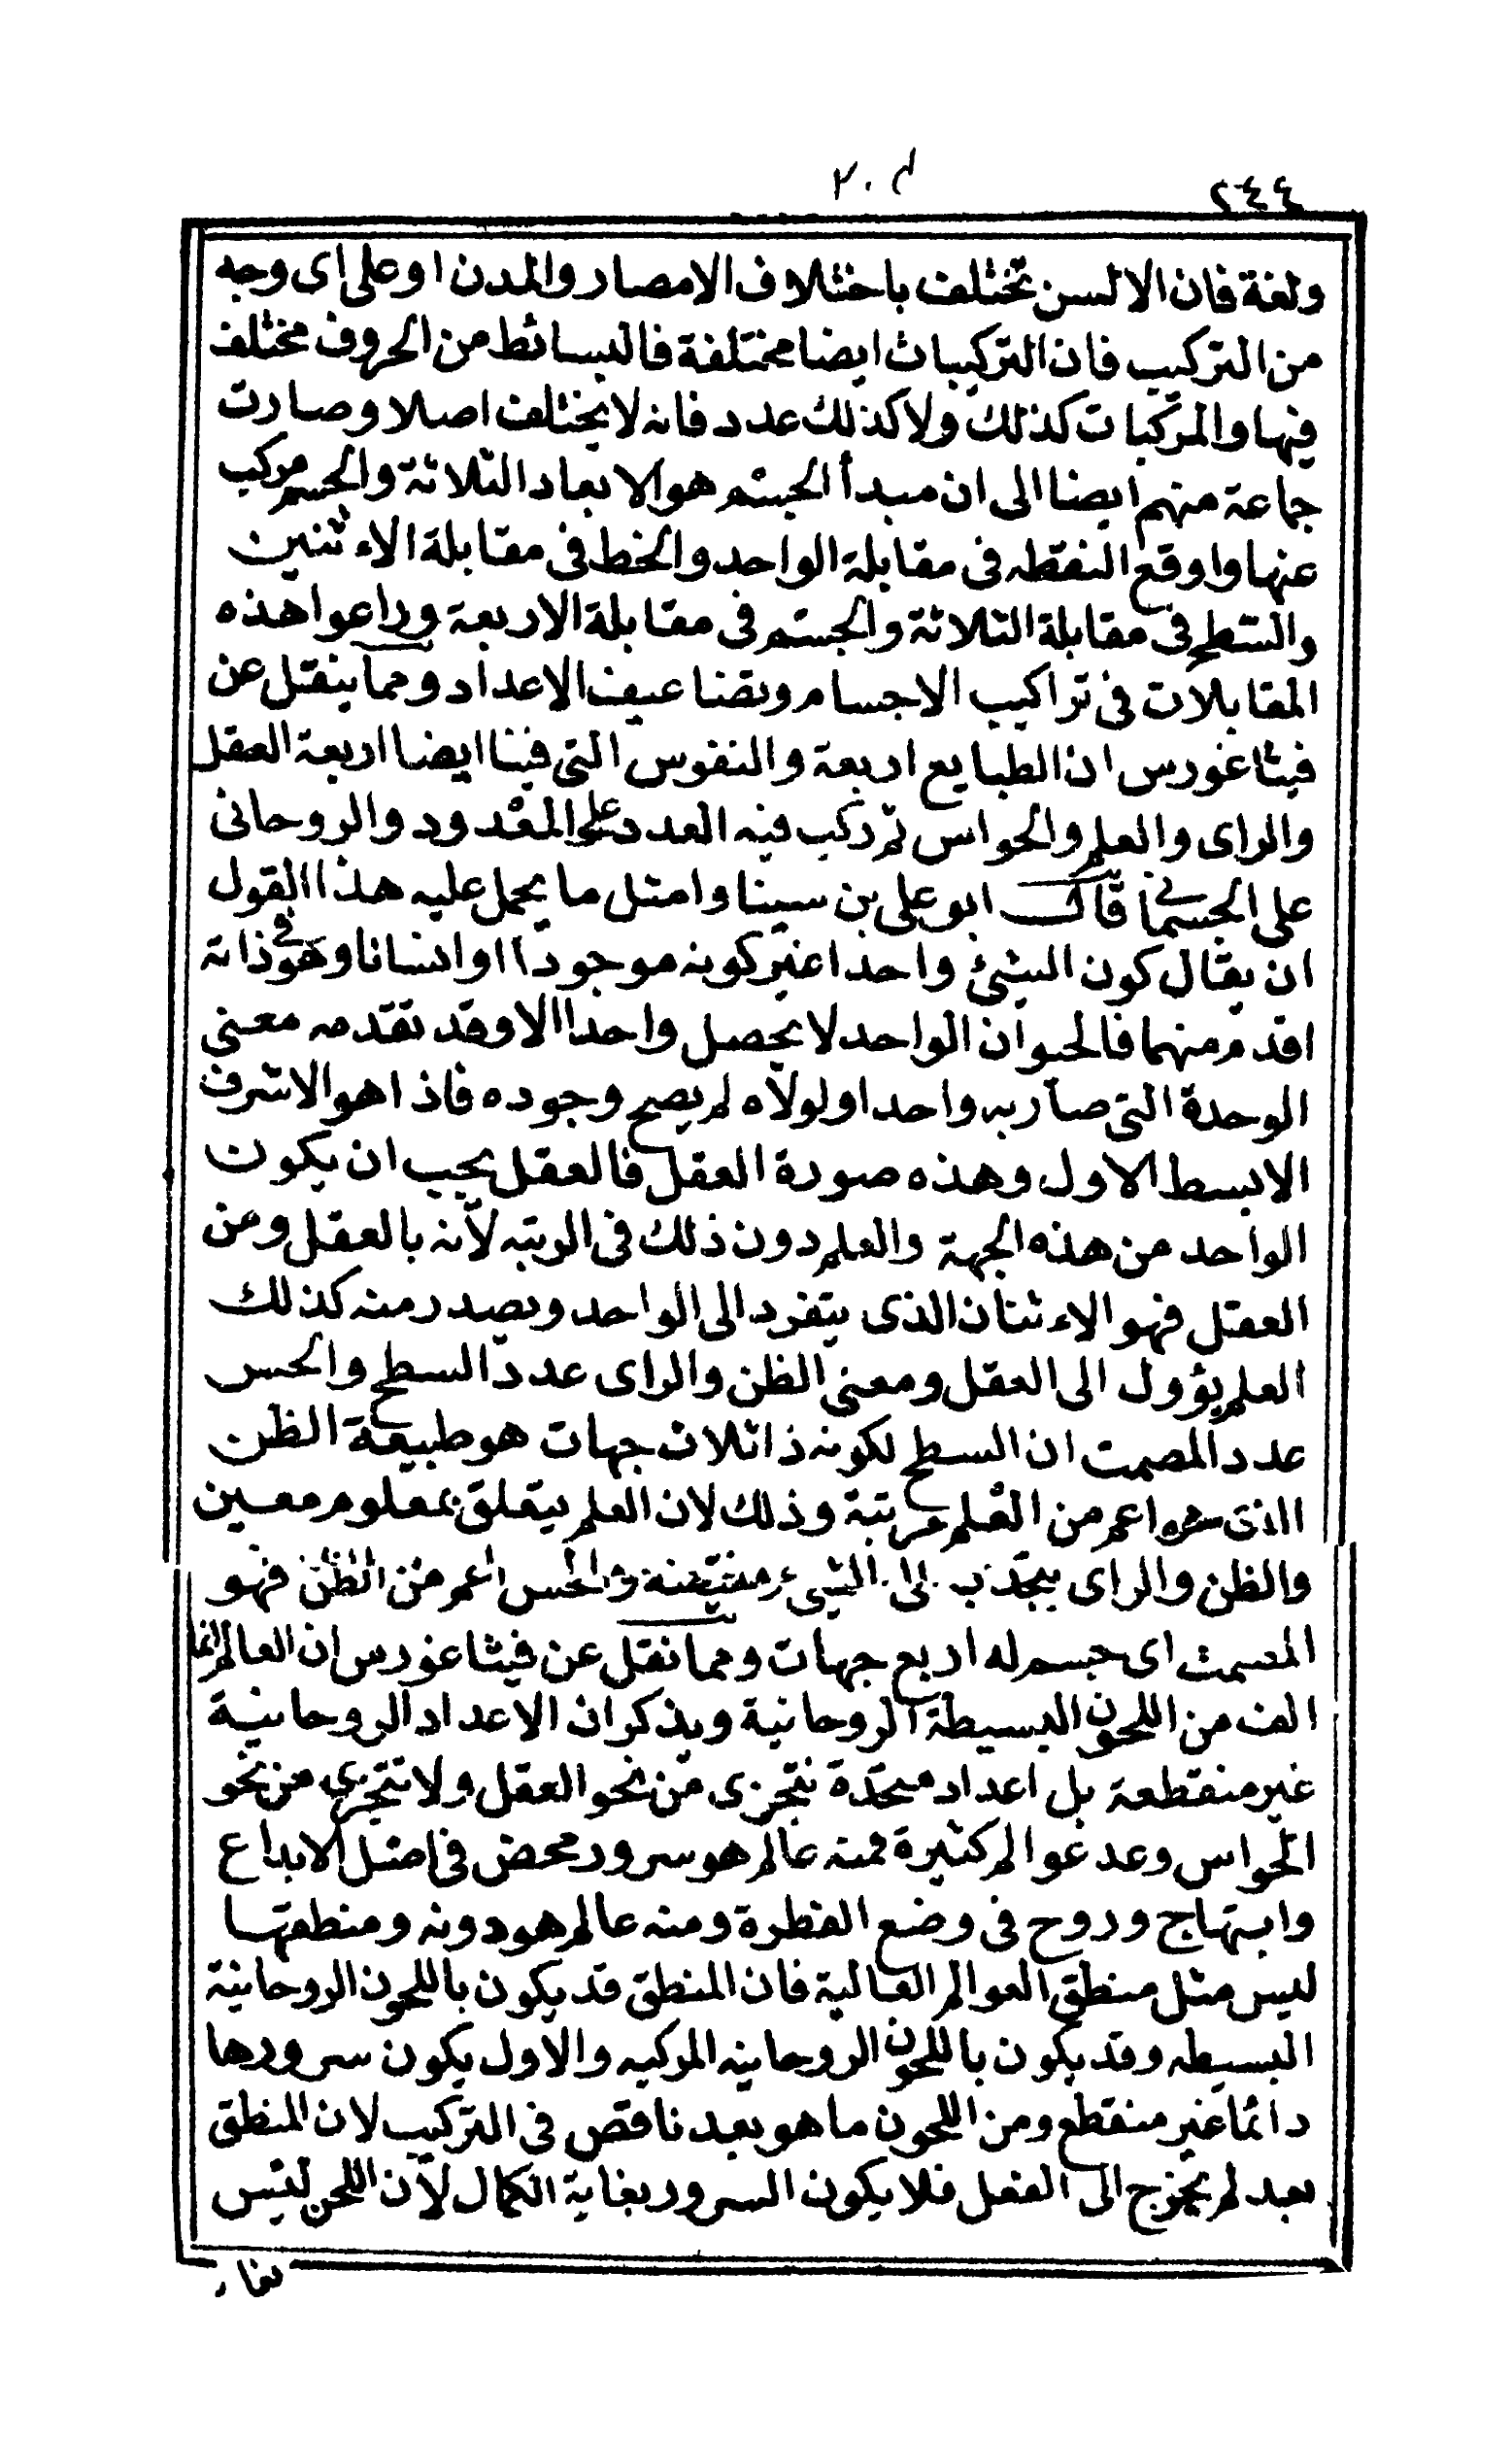 ٢٤٤
ولغة فان الالسن تختلف باختلاف الامصار والمدن او على اى وجه
من التركيب فان التركيبات ايضا مختلفة فالبسائط من الحروف مختلف
فيها والمركبات كذلك ولا كذلك عدد فانه لا يختلف اصلا وصارت
جماعة منهم ايضا الى ان مبدأ الجسم هو الابعاد الثلاثة والجسم مركب
عنها واوقع النقطه فى مقابلة الواحد والخط فى مقابلة الاءثنين
والسطح فى مقابلة الثلاثة والجسم فى مقابلة الاربعة وراعوا هذه
المقابلات فى تراكيب الاجسام وتضاعيف الاعداد ومما ينقل عن
فيثاغورس ان الطبايع اربعة والنفوس التى فينا ايضا اربعة العقل
والراى والعلم والحواس ثم ركب فيه العدد على المعدود والروحانى
على الجسمانى قال ابو على بن سينا وامثل ما يحمل عليه هذا القول
ان يقال كون الشئ واحدا غير كونه موجودا او انسانا وهو فى ذاته
اقدم منهما فالحيوان الواحد لا يحصل واحدا الا وقد تقدمه معنى
الوحدة التى صار به واحدا ولولاه لم يصح وجوده فاذا هو الاشرف
الابسط الاول وهذه صورة العقل فالعقل يجب ان يكون
الواحد من هذه الجهة والعلم دون ذلك فى الرتبه لأنه بالعقل ومن
العقل فهو الاءثنان الذى يتفرد الى الواحد ويصدر منه كذلك
العلم يؤول الى العقل ومعنى الظن والراى عدد السطح والحس
عدد المصمت ان السطح لكونه ذا ثلاث جهات هو طبيعة الظن
الذى هو اعم من العلم مرتبة وذلك لان العلم يتعلق بمعلوم معين
والظن والراى يجذب الى الشىء ونقيضه والحس اعم من الظن فهو
المصمت اى جسم له اربع جهات ومما نقل عن فيثاغورس ان العالم انما
الف من اللحون البسيطة الروحانية ويذكر ان الاعداد الروحانية
غير منقطعة بل اعداد متحدة تتجزى من نحو العقل ولا تتجزى من نحو
الحواس وعد عوالم كثيرة فمنه عالم هو سرور محض فى اصل الابداع
وابتهاج وروح فى وضع الفطرة ومنه عالم هو دونه ومنطقها
ليس مثل منطق العوالم العالية فان المنطق قد يكون باللحون الروحانية
البسيطه وقد يكون باللحون الروحانيه المركبه والاول يكون سرورها
دائما غير منقطع ومن اللحون ما هو بعد ناقص فى التركيب لان المنطق
بعد لم يخرج الى الفعل فلا يكون السرور بغاية الكمال لأن اللحن ليس